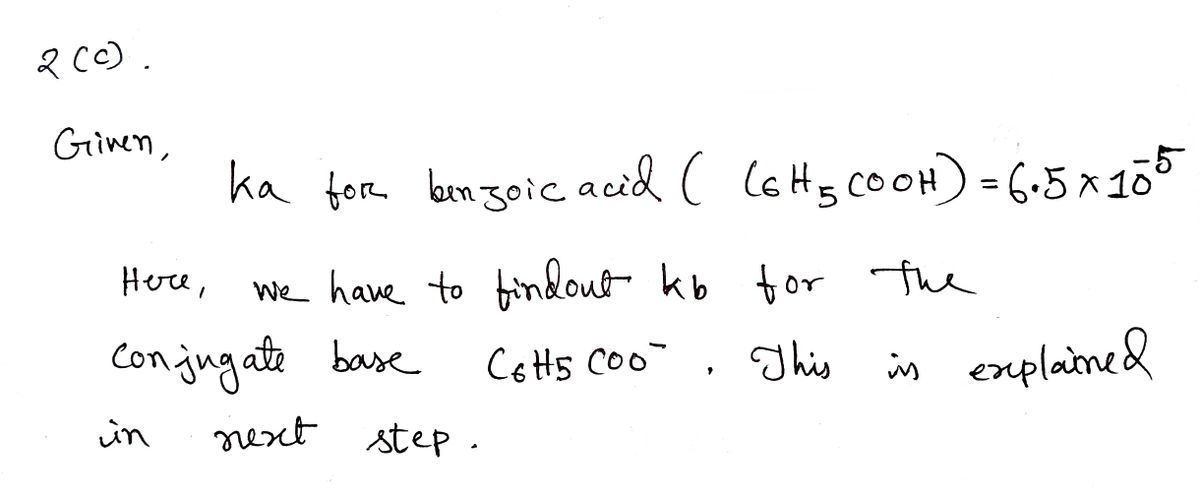 2 (c).
Given,
ka for benzoic acid ( C6H5COOH) = 6.5 x 10⁻⁵
Here, we have to findout kb for the
conjugate base C6H5COO⁻. This is explained
in next step.